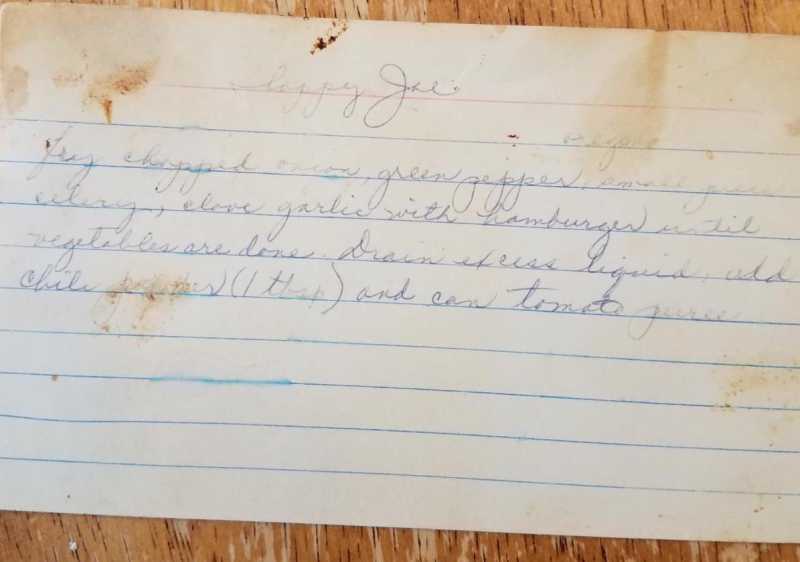 Sloppy Joe
Fry chopped onion, green pepper, small piece
celery, clove garlic with hamburger until
vegetables are done. Drain excess liquid, add
chili powder (1 tbsp) and can tomato puree